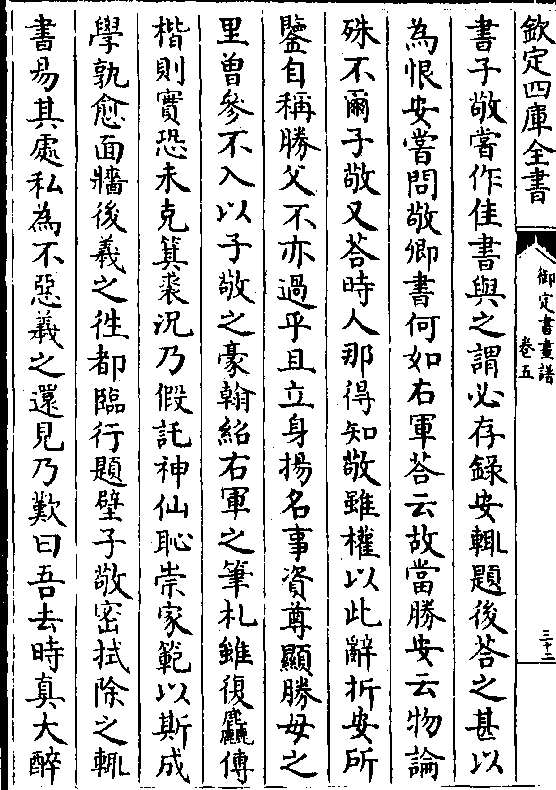 欽定四庫全書
御定書畫譜
卷五
三十二
書子敬嘗作佳書與之謂必存錄安輒題後荅之甚以
為恨安嘗問敬卿書何如右軍荅云故當勝安云物論
殊不爾子敬又荅時人那得知敬雖權以此辭折安所
鑒自稱勝父不亦過乎且立身揚名事資尊顯勝母之
里曾參不入以子敬之豪翰紹右軍之筆札雖復麤傳
楷則實恐未克箕裘況乃假託神仙恥崇家範以斯成
學孰愈面牆後羲之徃都臨行題壁子敬密拭除之輒
書易其處私為不惡羲之還見乃歎曰吾去時真大醉